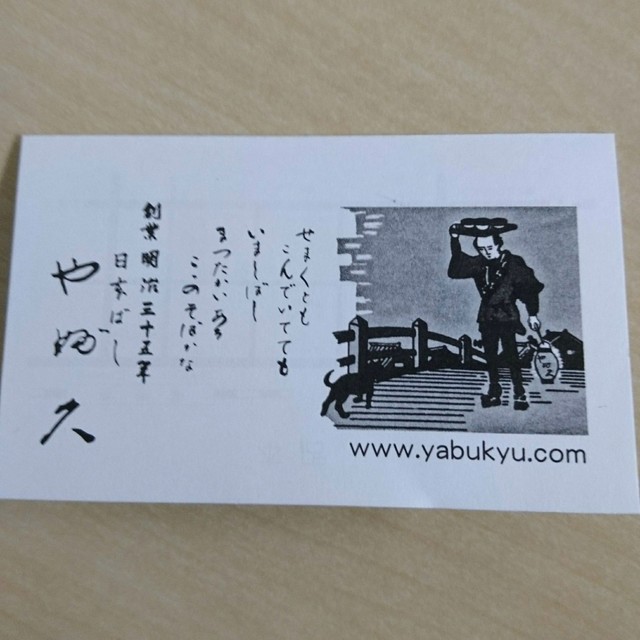 せまくとも
こんでいてても
いましばし
まつたかいある
このそばかな
創業明治三十五年
日本ばし
やぶ久
www.yabukyu.com